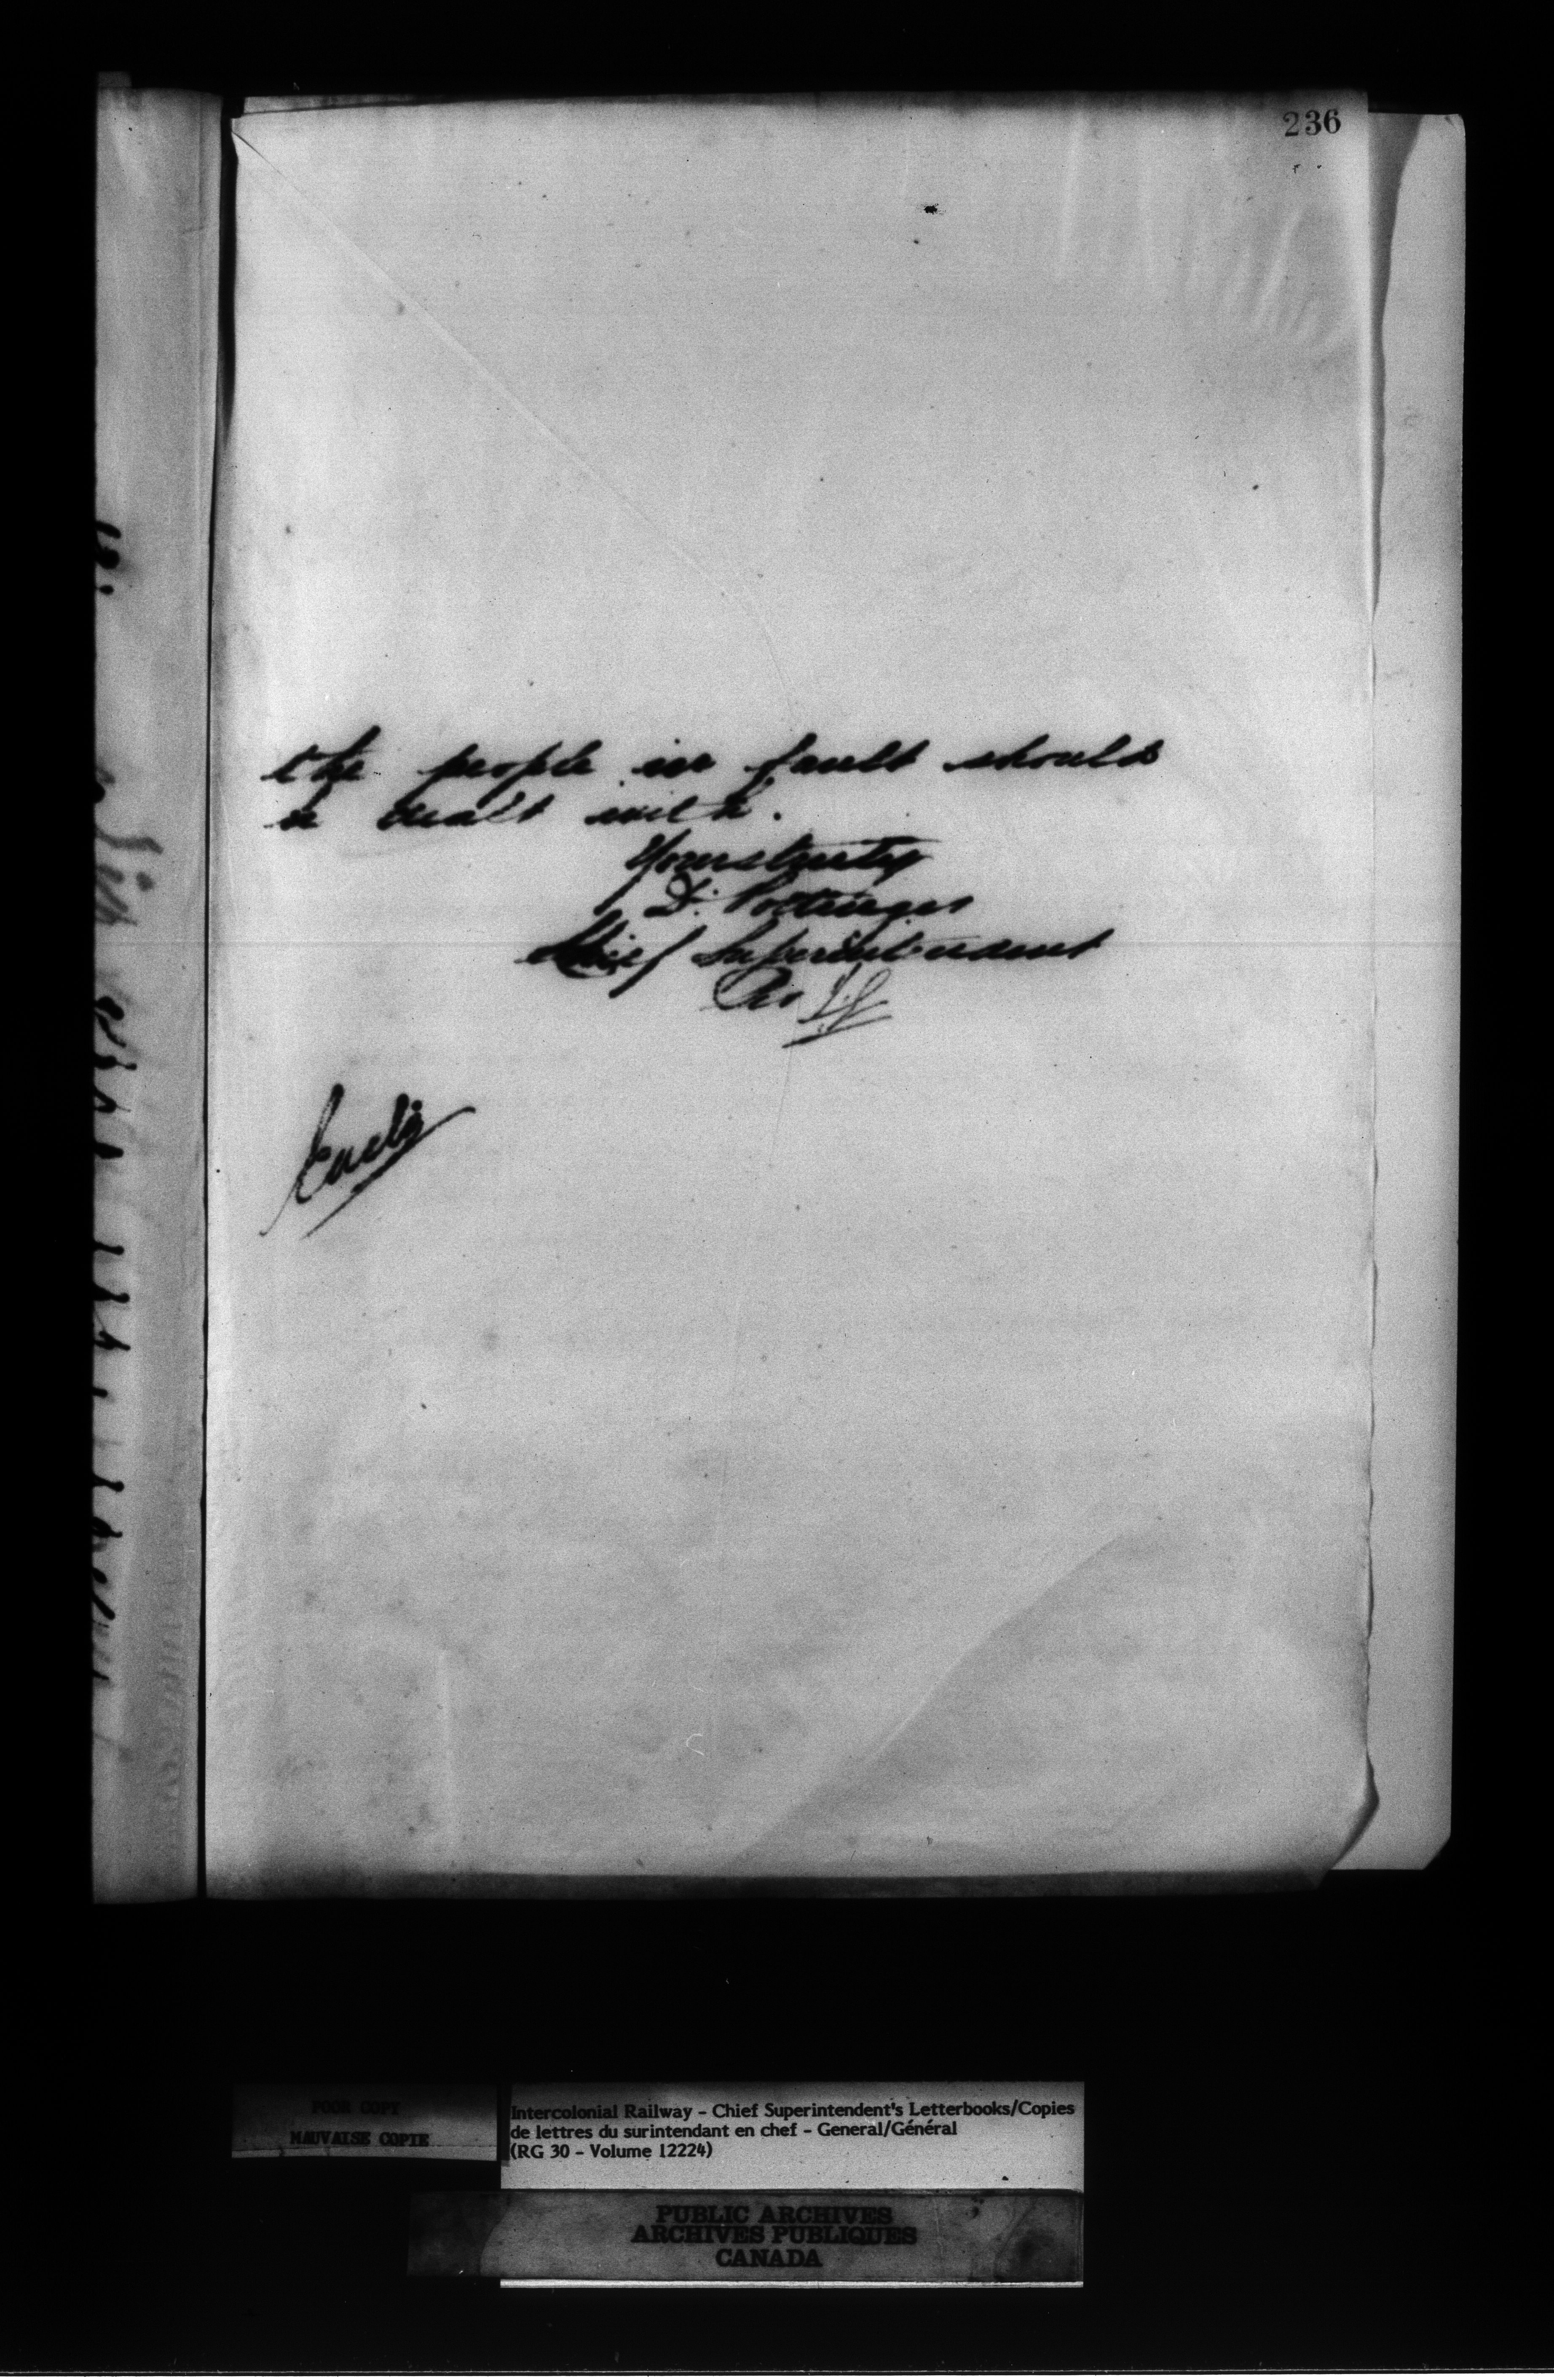 236
the people in fault should
be dealt with.
Yours truly
D. Pottinger
Chief Superintendent
Per
POOR COPY
MAUVAISE COPIE
Intercolonial Railway - Chief Superintendent's Letterbooks/Copies
de lettres du surintendant en chef - General/Général
(RG 30 - Volume 12224)
PUBLIC ARCHIVES
ARCHIVES PUBLIQUES
CANADA